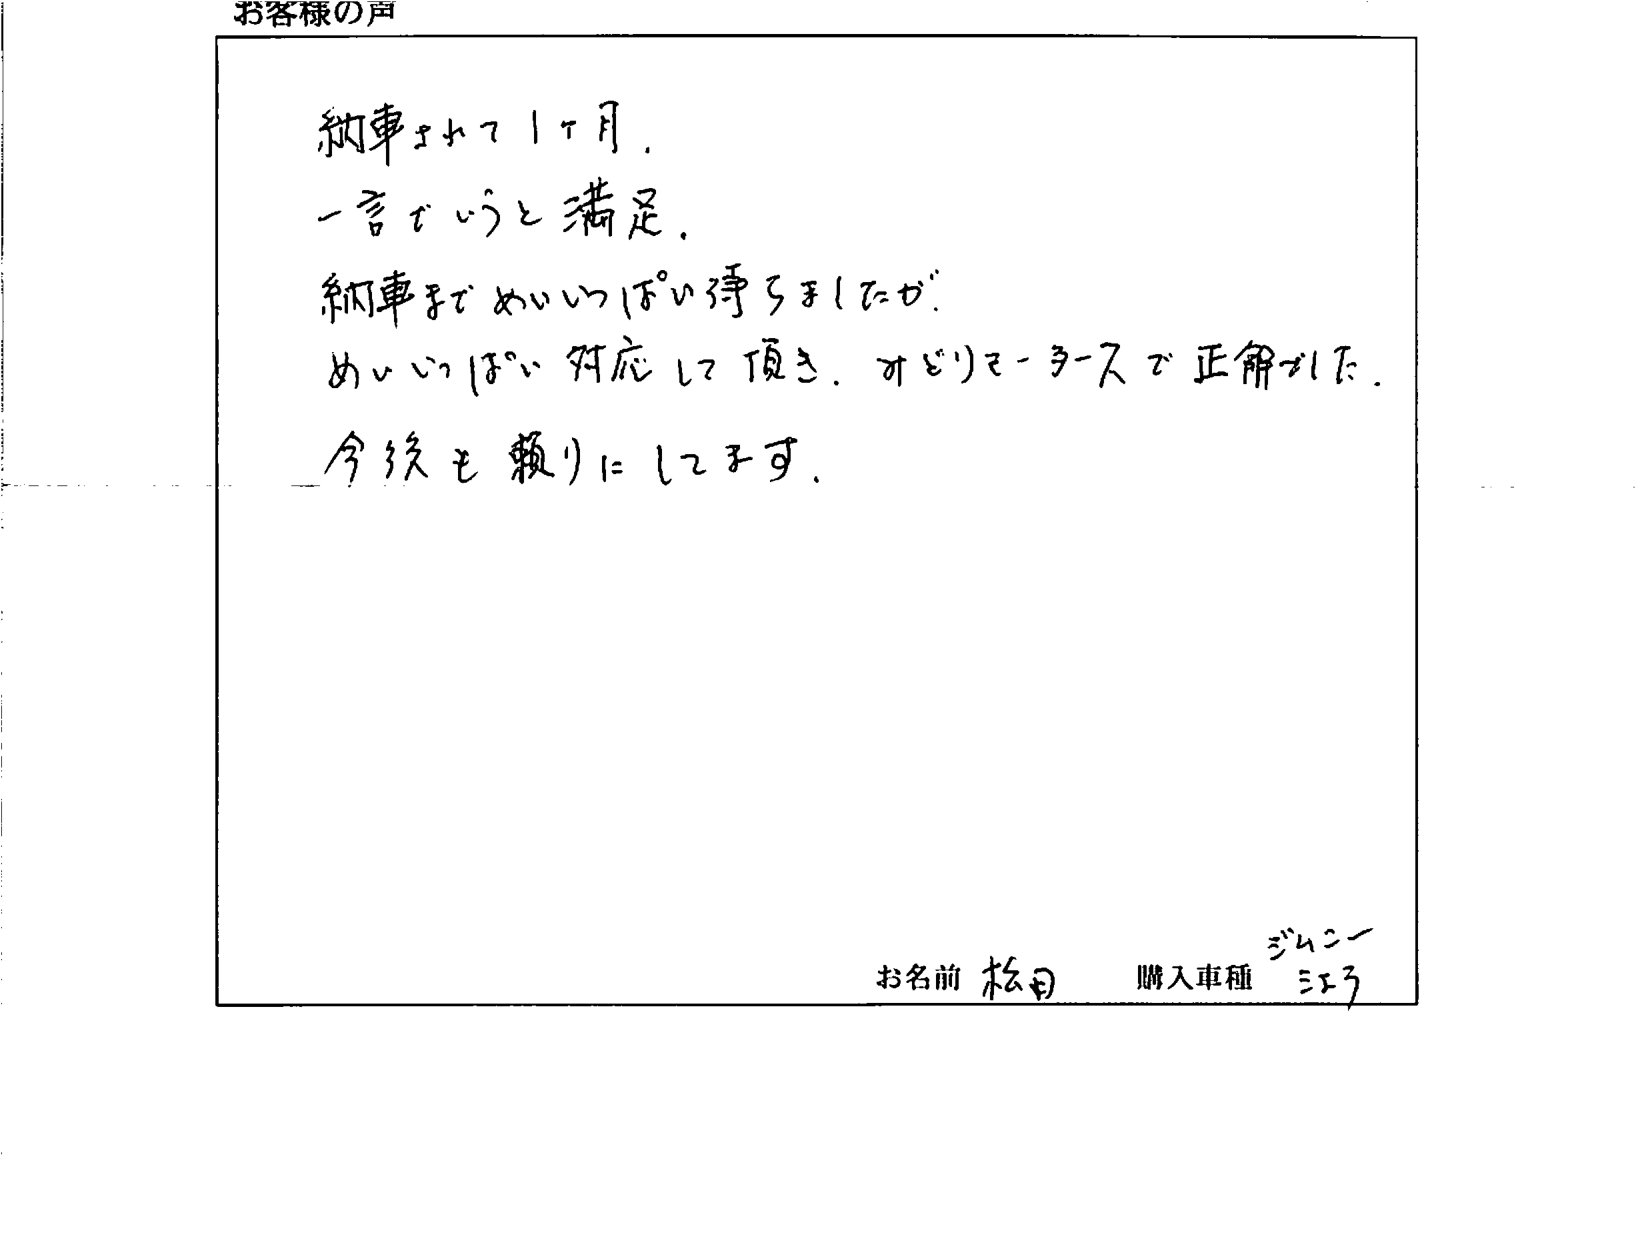 お客様の声
納車されて1ヶ月.
一言でいうと満足.
納車までめいいっぱい待ちましたが.
めいいっぱい対応して頂き. みどりモータースで正解でした.
今後も頼りにしてます.
ジムニー
お名前 松田 購入車種 シエラ